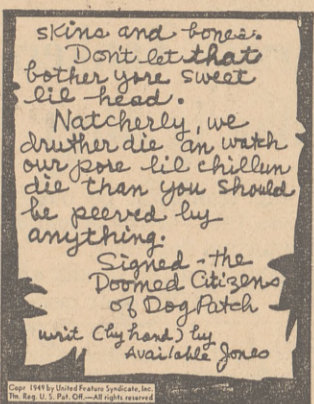 skins and bones.
Don't let that
bother yore sweet
lil head.
Natcherly, we
druther die an watch
our pore lil chillun
die than you should
be peeved by
anything.
Signed - the
Doomed Citizens
of DogPatch
writ (by hand) by
Available Jones
Copr 1949 by United Feature Syndicate, Inc.
Tm. Reg. U. S. Pat. Off.—All rights reserved